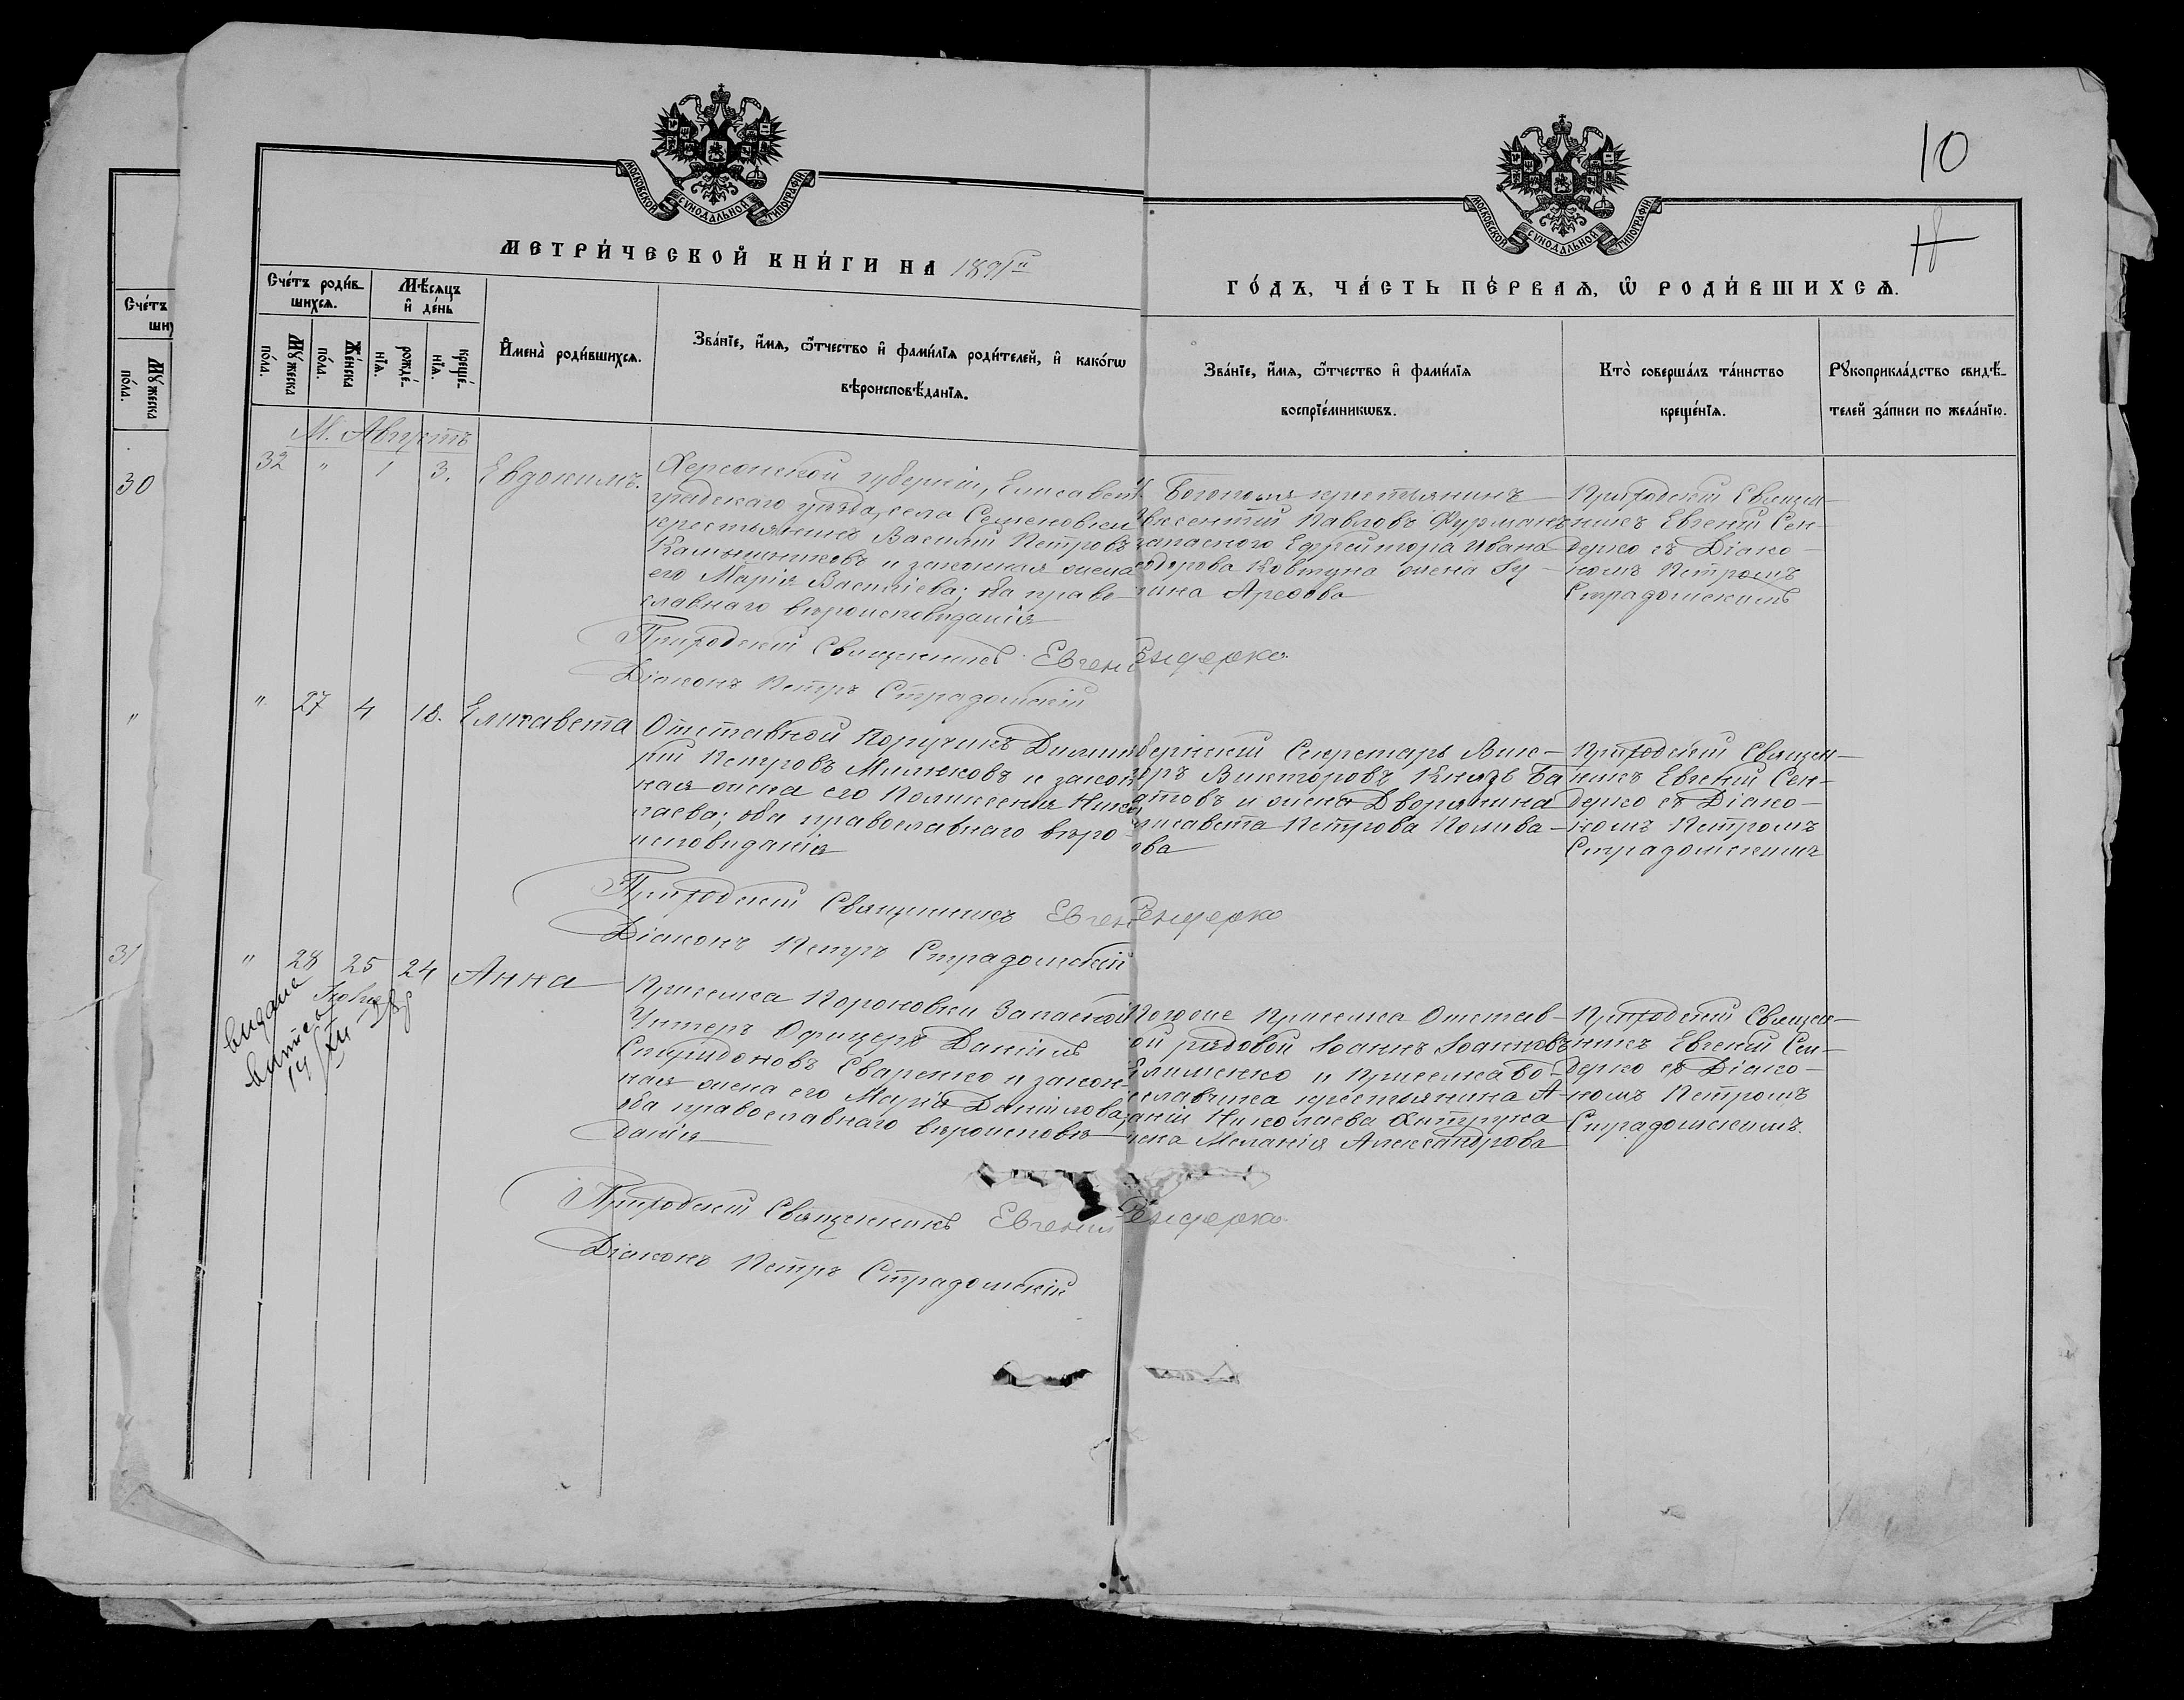 10
МОСКОВСКОЙ СѴНОДАЛЬНОЙ ТИПОГРАФІИ
МОСКОВСКОЙ СѴНОДАЛЬНОЙ ТИПОГРАФІИ
МЕТРИ́ЧЕСКОЙ КНИ́ГИ НА 1891й
ГО́ДЪ, ЧА́СТЬ ПЕ́РВАѦ, Ѿ РОДИ́ВШИХСѦ.
Сче́тъ роди́вшихсѧ.
Мѣ́сѧцъ и҆ де́нь
Мꙋ́жеска по́ла.
Же́нска по́ла.
рожде́нїѧ.
креще́нїѧ.
И҆мена̀ роди́вшихсѧ.
Зва́нїе, и҆́мѧ, ѻ҆́тчество и҆ фами́лїѧ роди́телей, и҆ како́гѡ
вѣроисповѣ́данїѧ.
Зва́нїе, и҆́мѧ, ѻ҆́тчество и҆ фами́лїѧ
воспрїе́мникѡвъ.
Кто̀ соверша́лъ та́инство
креще́нїѧ.
Рꙋкоприкла́дство свидѣ́-
телей за́писи по жела́нїю.
Сче́тъ
Мꙋ́жеска по́ла.
30
"
31
М. Августъ
32 " 1 3. Евдокимъ.
Херсонской губерніи, Елисавет
градскаго уѣзда, села Семеновки
крестьянинъ Василій Петровъ
Калышниковъ и законная жена
его Марія Васильева; оба право
славнаго вѣроисповѣданія
Богополя крестьянинъ
Авксентій Павловъ Фурманъ
запасного Ефрейтора Ивана
Ѳедорова Ковтуна жена
Арефова
Приходскій Священ-
никъ Евгеній Сен-
дерко съ Діако-
номъ Петромъ
Страдомскимъ
Приходскій Священникъ Евгеній Сендерко.
Діаконъ Петръ Страдомскій
" 27 4 18. Елисавета
Отставной Поручикъ Димит
рій Петровъ Милюковъ и закон
ная жена его Поликсенія Нико
лаева; оба православнаго вѣро-
исповѣданія
Губернскій Секретарь Вик-
торъ Викторовъ Князь Ба
ратовъ и жена Дворянина
Елисавета Петрова Полива-
нова
Приходскій Священ-
никъ Евгеній Сен-
дерко съ Діако-
номъ Петромъ
Страдомскимъ
Приходскій Священникъ Евгеній Сендерко
Діаконъ Петръ Страдомскій
" 28 25 24 Анна
Іюля
видана
витяг
Приселка Короновки Запасной
Унтеръ Офицеръ Даніилъ
Спиридоновъ Сваренко и закон-
ная жена его Марія Даніилова;
оба православнаго вѣроисповѣ-
данія
Приселка Отстав-
ной рядовой Іоаннъ Іоанновъ
Клименко и Приселка Бо-
гославчика крестьянина А-
нанія Николаева Хитрука
жена Меланія Александрова
Приходскій Священ-
никъ Евгеній Сен-
дерко съ Діако-
номъ Петромъ
Страдомскимъ.
Приходскій Священникъ Евгеній Сендерко.
Діаконъ Петръ Страдомскій